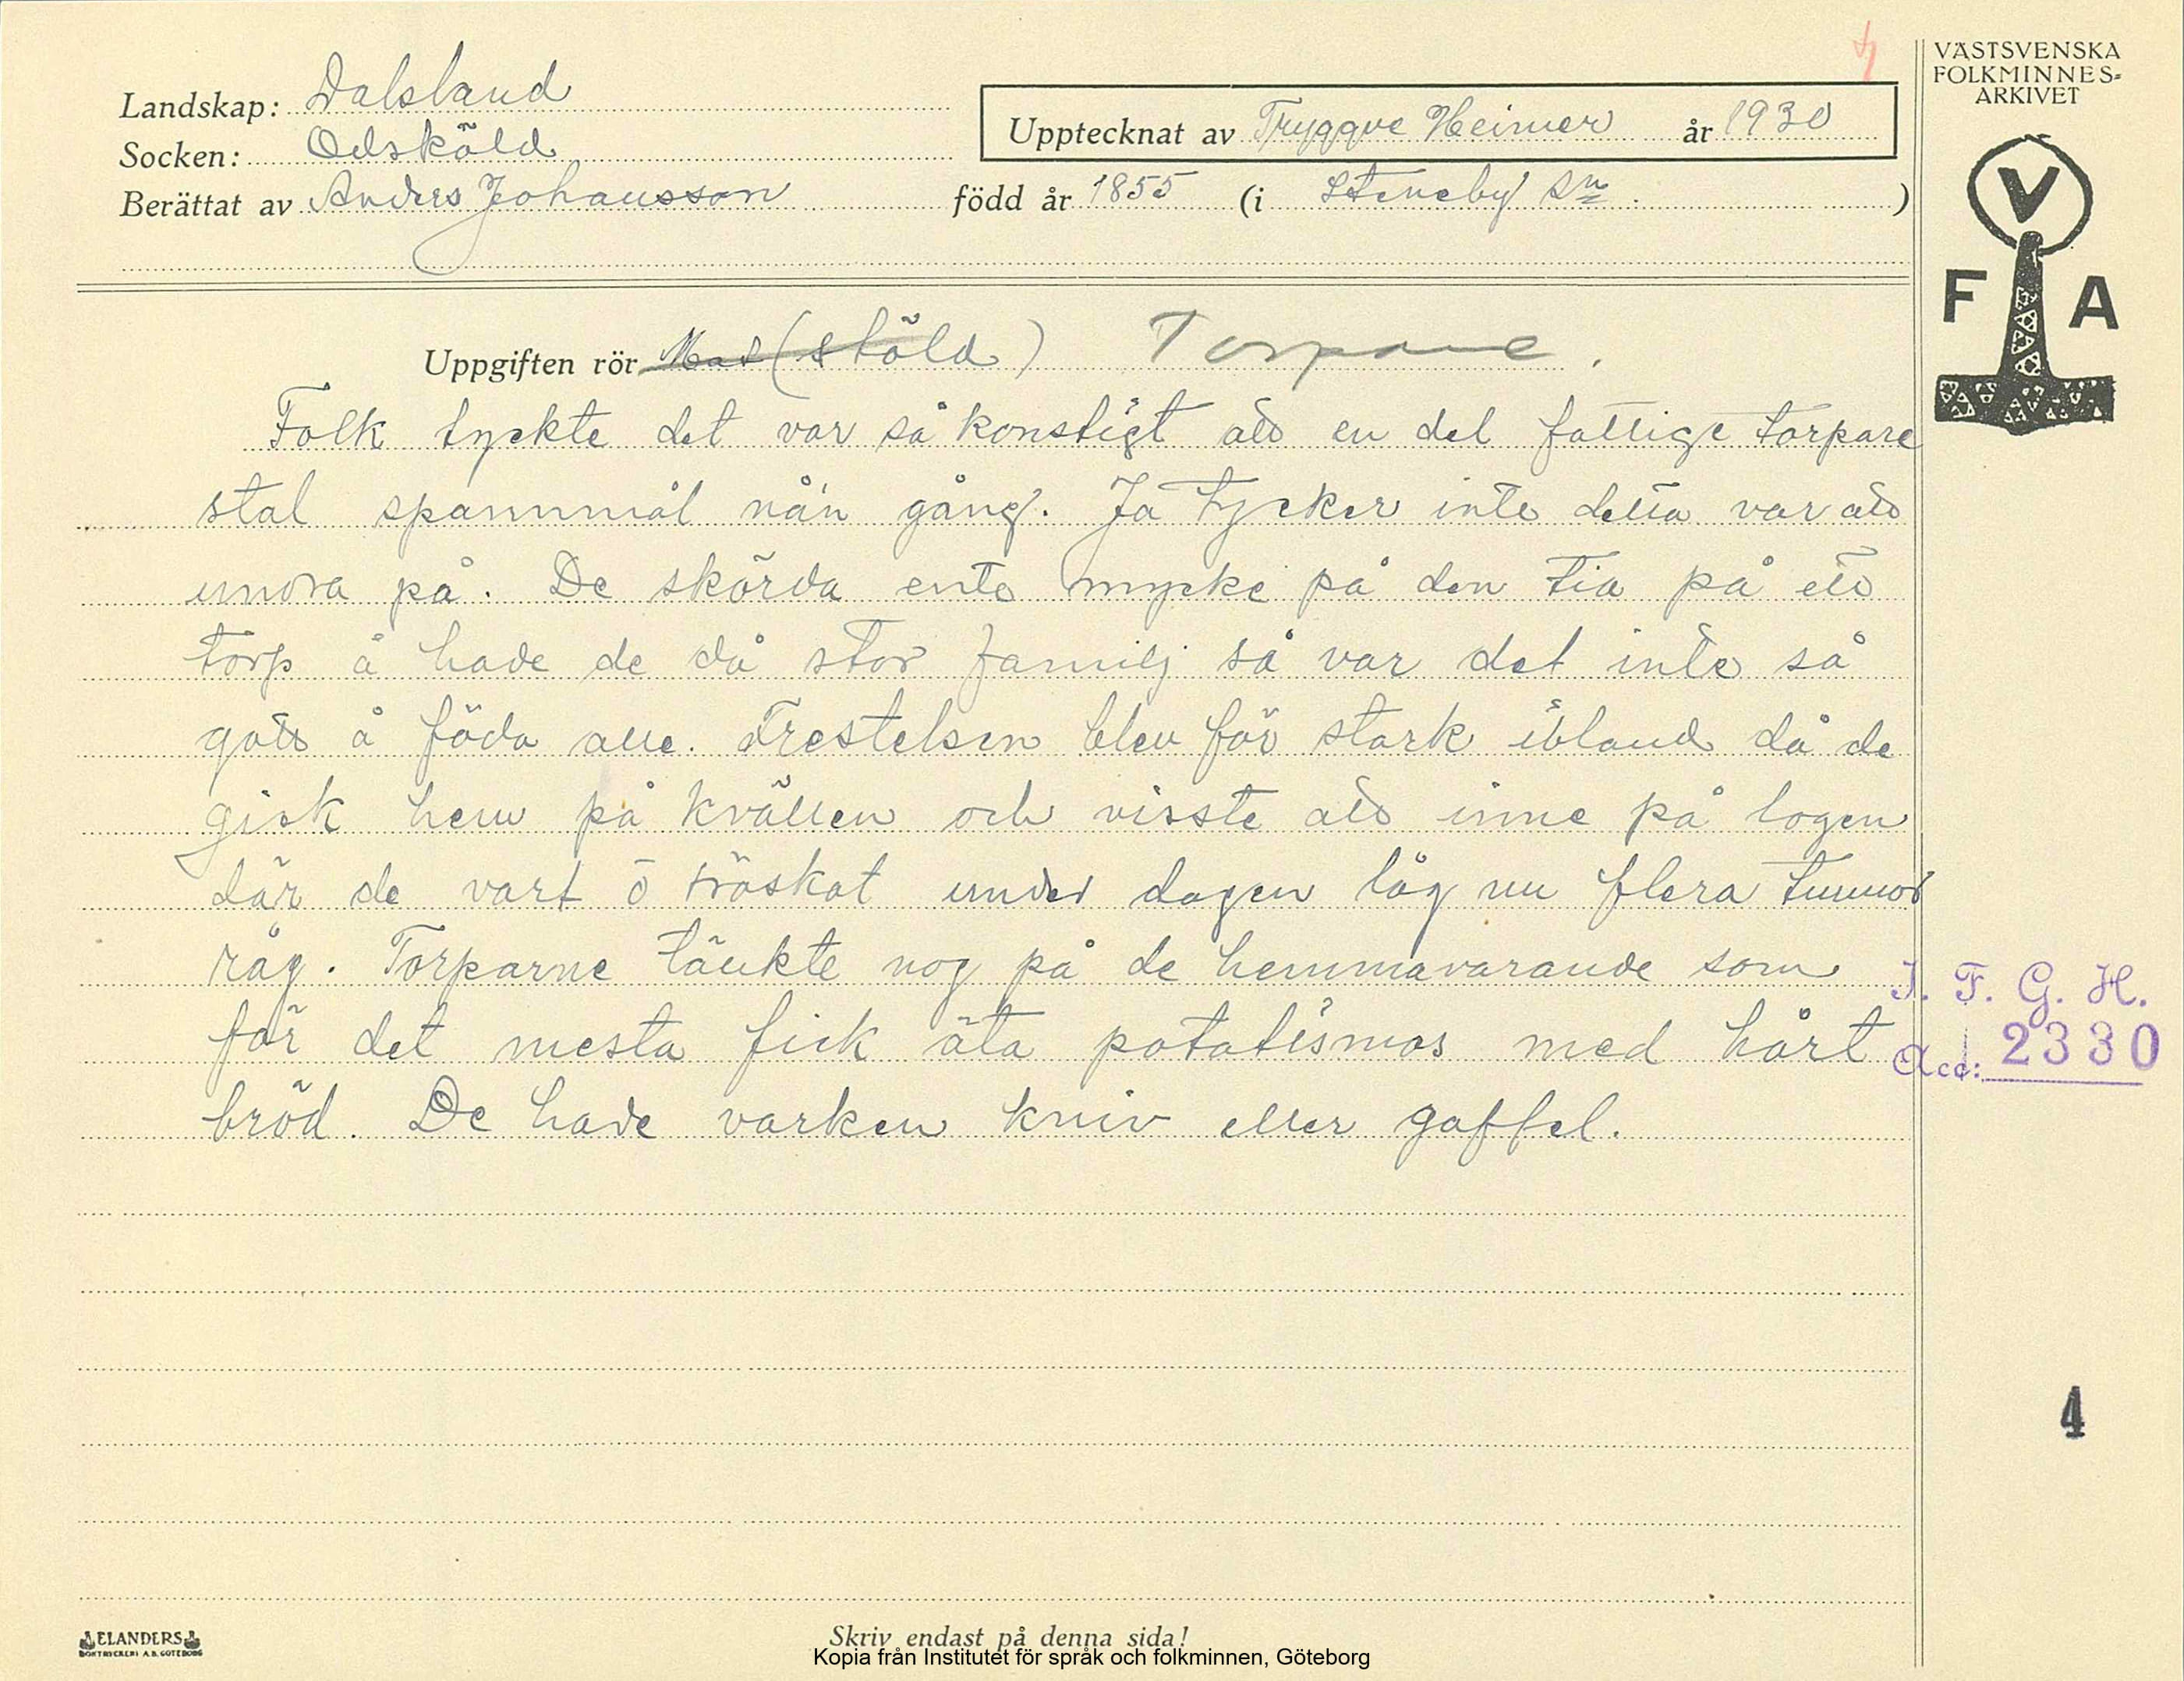 VÄSTSVENSKA
FOLKMINNES-
ARKIVET
Landskap: Dalsland
Socken: Ödskõld
Upptecknat av Tryggve Heimer år 1930
Berättat av Anders Johansson född år 1855 (i Steneby sn. )
V
F A
Uppgiften rör Mat (stöld) Torpare.
Folk tyckte det var så konstigt att en del fattige torpare
stal spannmål nå'n gång. Ja tycker inte detta var att
undra på. De skörda ente mycke på den tia på ett
torp å hade de då stor familj så var det inte så
gott å föda alle. Frestelsen blev för stark ibland då de
gick hem på kvällen och visste att inne på logen
där de vart ō tröskat under dagen låg nu flera tunnor
råg. Torparne tänkte nog på de hemmavarande som
för det mesta fick äta potatismos med hårt
bröd. De hade varken kniv eller gaffel.
I. F. G. H.
Acc: 2330
4
ELANDERS
BOKTRYCKERI A.B. GÖTEBORG
Skriv endast på denna sida!
Kopia från Institutet för språk och folkminnen, Göteborg